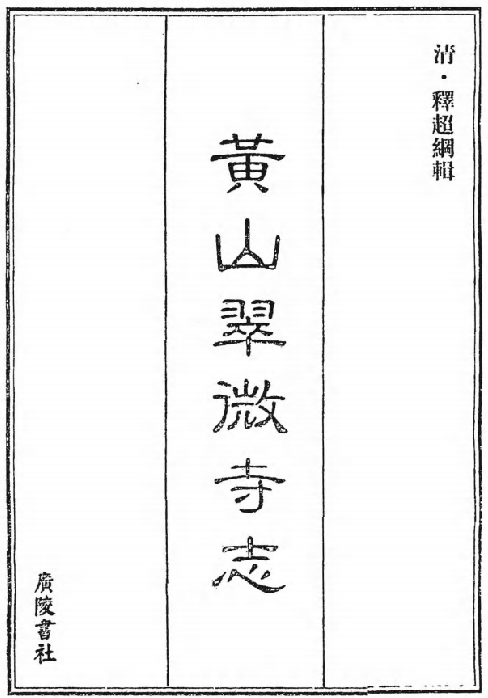 清·釋超綱輯
黃山翠微寺志
廣陵書社